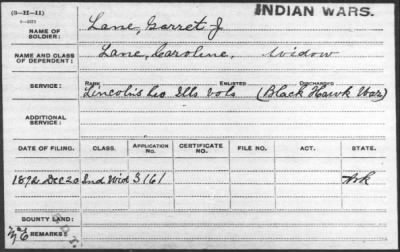 (3-II-11)
INDIAN WARS.
NAME OF SOLDIER: Lane, Garret J
NAME AND CLASS OF DEPENDENT: Lane, Caroline, Widow
SERVICE: RANK ENLISTED DISCHARGED
Lincoln's Co Ills Vols (Black Hawk War)
ADDITIONAL SERVICE:
DATE OF FILING. CLASS. APPLICATION NO. CERTIFICATE NO. FILE NO. ACT. STATE.
1892 Dec 20 Ind Wid 3161 Ark
BOUNTY LAND:
REMARKS: